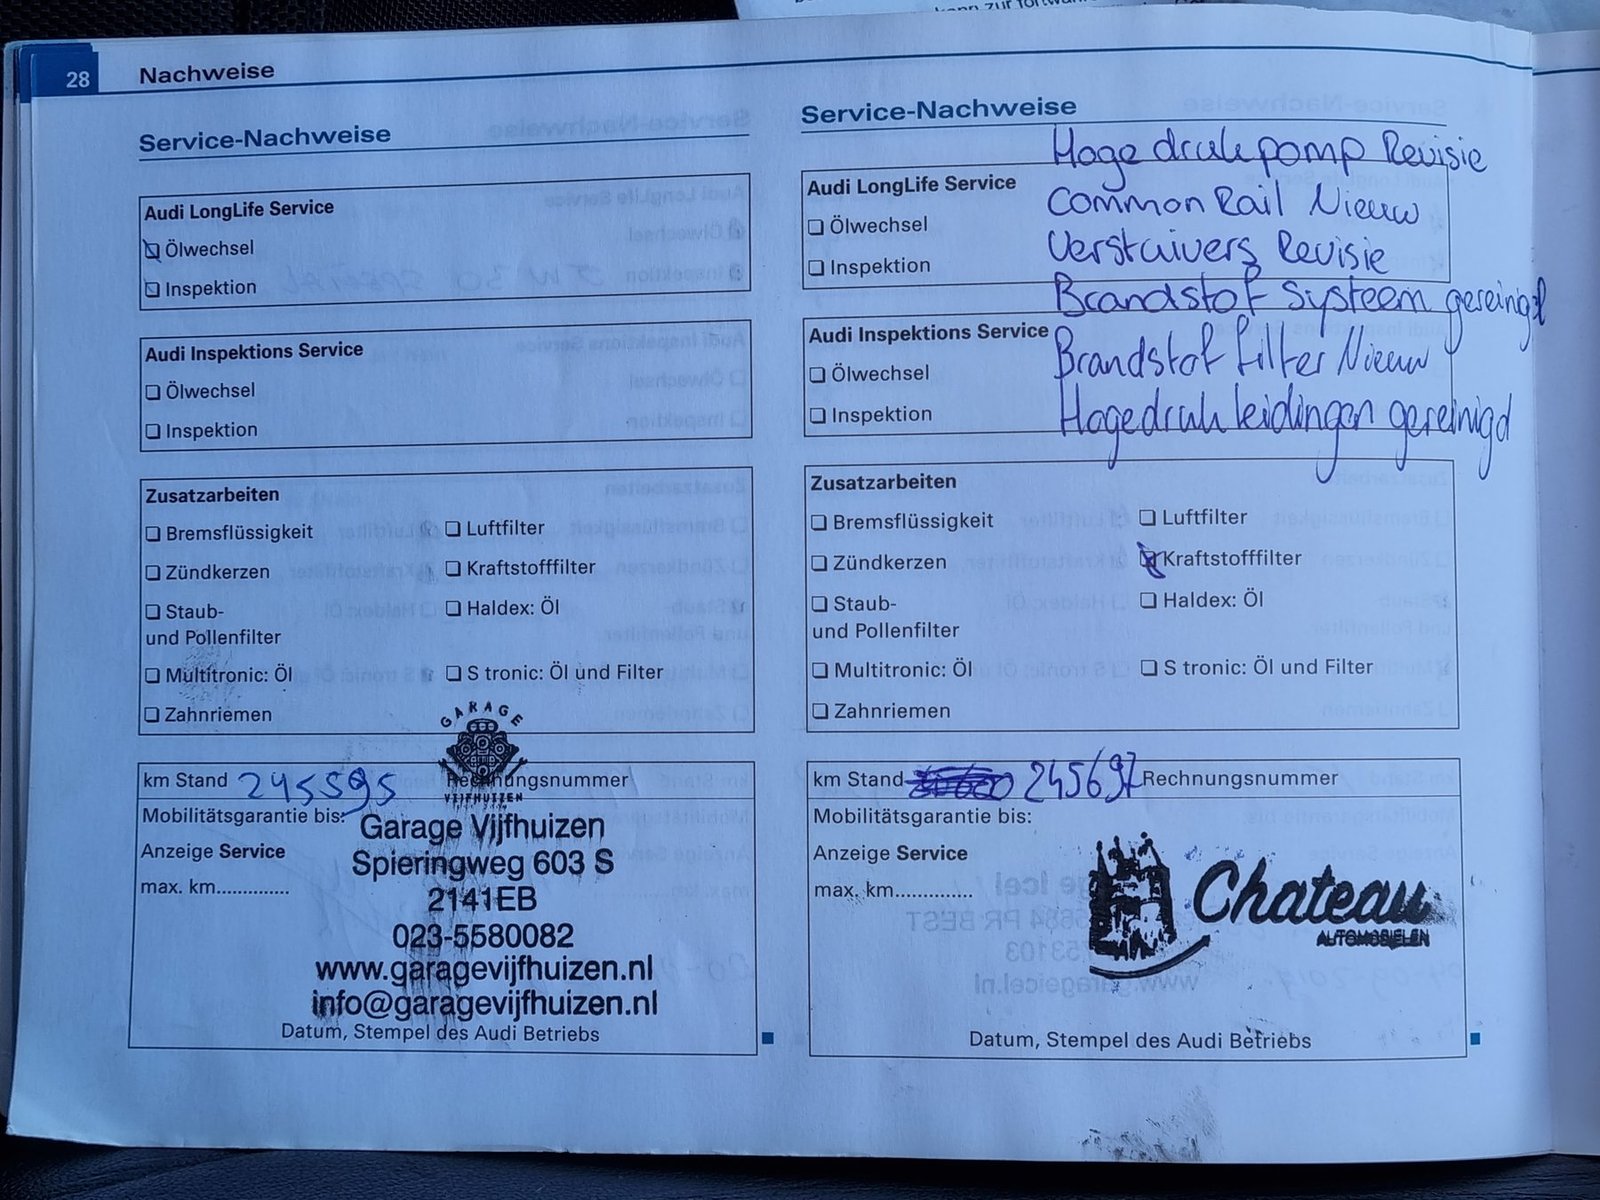 28
Nachweise
Service-Nachweise
Audi LongLife Service
Ölwechsel
Inspektion
Audi Inspektions Service
Ölwechsel
Inspektion
Zusatzarbeiten
Bremsflüssigkeit
Luftfilter
Zündkerzen
Kraftstofffilter
Staub-
und Pollenfilter
Haldex: Öl
Multitronic: Öl
S tronic: Öl und Filter
Zahnriemen
GARAGE
VIJFHUIZEN
km Stand 245595 Rechnungsnummer
Mobilitätsgarantie bis:
Anzeige Service
max. km..............
Garage Vijfhuizen
Spieringweg 603 S
2141EB
023-5580082
www.garagevijfhuizen.nl
info@garagevijfhuizen.nl
Datum, Stempel des Audi Betriebs
Service-Nachweise
Hogedrukpomp Revisie
Common Rail Nieuw
Verstuivers Revisie
Brandstof Systeem gereinigd
Brandstof filter Nieuw
Hogedruk leidingen gereinigd
Audi LongLife Service
Ölwechsel
Inspektion
Audi Inspektions Service
Ölwechsel
Inspektion
Zusatzarbeiten
Bremsflüssigkeit
Luftfilter
Zündkerzen
Kraftstofffilter
Staub-
und Pollenfilter
Haldex: Öl
Multitronic: Öl
S tronic: Öl und Filter
Zahnriemen
km Stand 245697 Rechnungsnummer
Mobilitätsgarantie bis:
Anzeige Service
max. km..............
Chateau
AUTOMOBIELEN
Datum, Stempel des Audi Betriebs